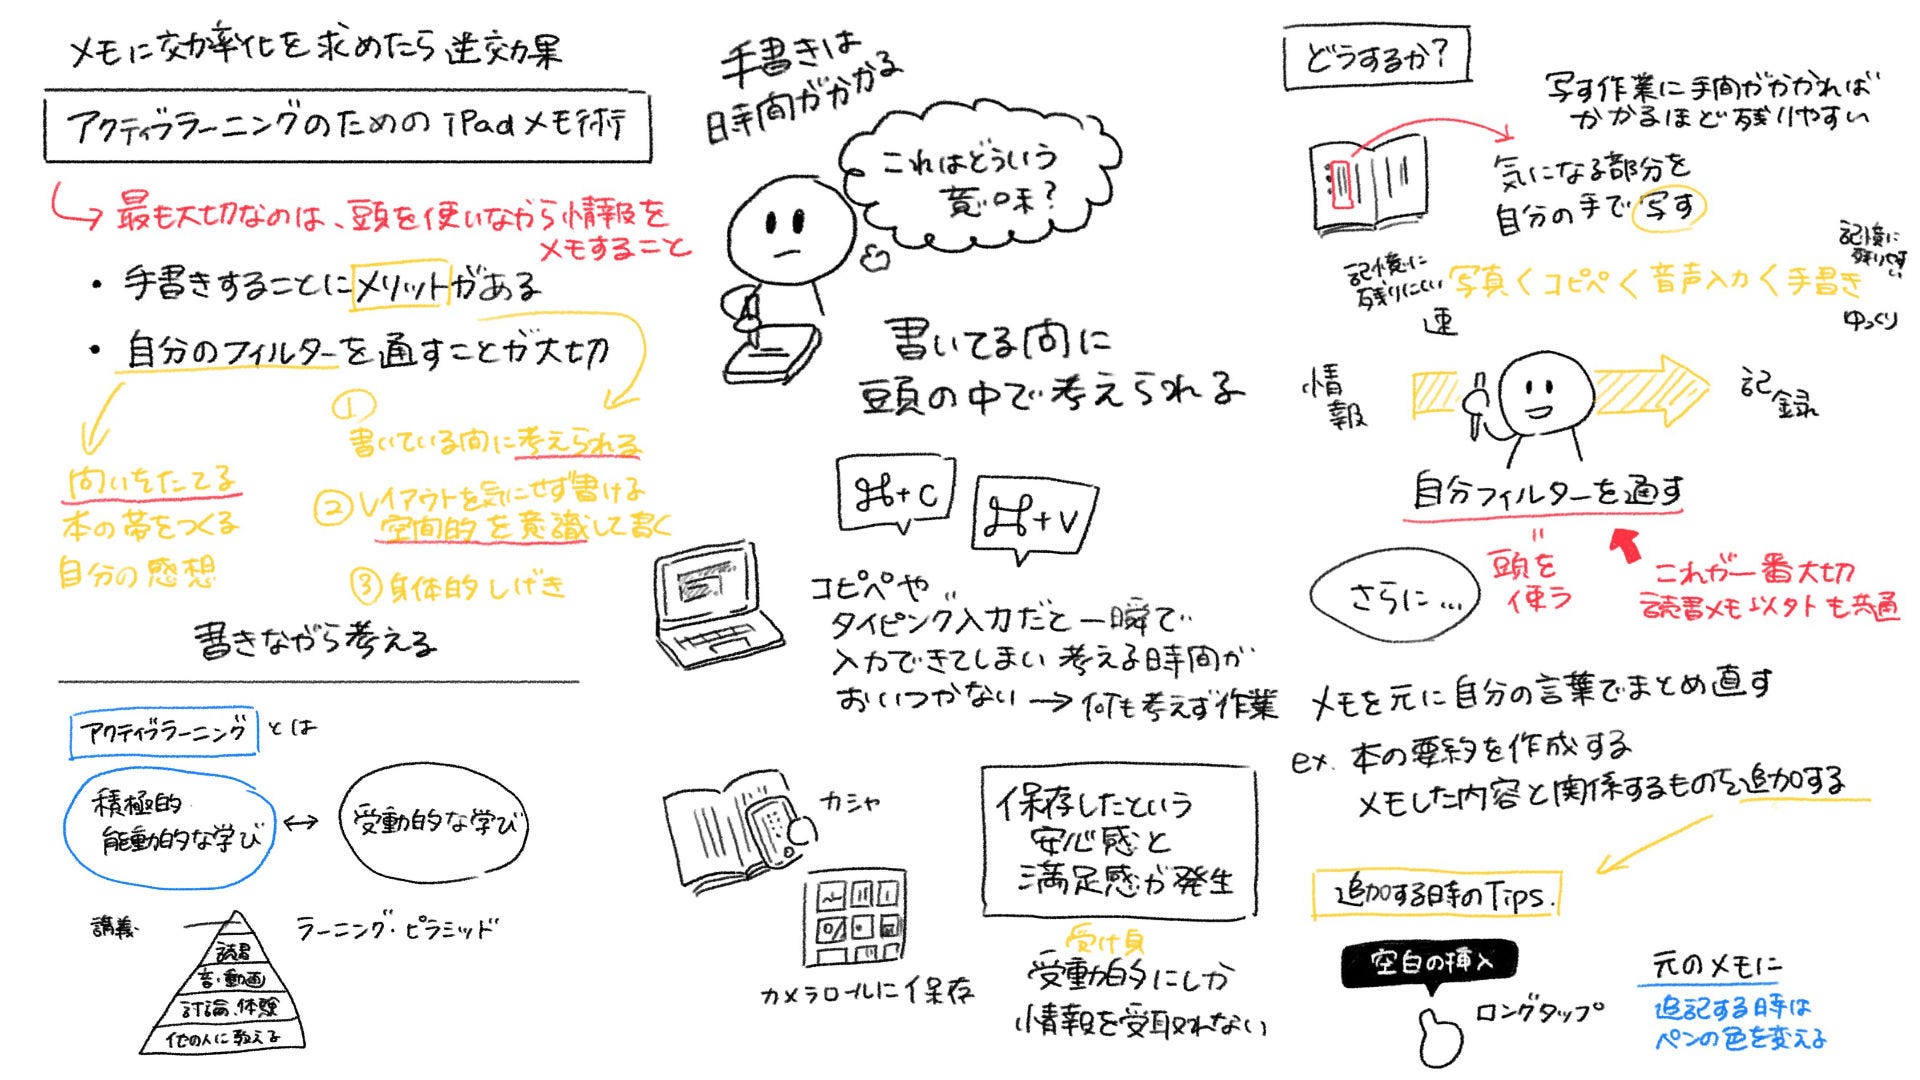 メモに効率化を求めたら逆効果
アクティブラーニングのためのiPadメモ術
最も大切なのは、頭を使いながら情報を
メモすること
・手書きすることにメリットがある
・自分のフィルターを通すことが大切
問いをたてる
本の帯をつくる
自分の感想
①
書いている間に考えられる
②レイアウトを気にせず書ける
空間的を意識して書く
③身体的しげき
書きながら考える
アクティブラーニングとは
積極的
能動的な学び
↔
受動的な学び
講義
ラーニング・ピラミッド
読書
音・動画
討論、体験
他の人に教える
手書きは
時間がかかる
これはどういう
意味?
書いてる間に
頭の中で考えられる
⌘+C
⌘+V
コピペや
タイピング入力だと一瞬で
入力できてしまい考える時間が
おいつかない→何も考えず作業
カシャ
カメラロールに保存
保存したという
安心感と
満足感が発生
受け身
受動的にしか
情報を受取れない
どうするか?
写す作業に手間がかかれば
かかるほど残りやすい
気になる部分を
自分の手で写す
記憶に
残りにくい
写真<コピペ<音声入力<手書き
記憶に
残りやすい
速
ゆっくり
情報
記録
自分フィルターを通す
"
頭を
使う
これが一番大切
読書メモ以外も共通
さらに...
メモを元に自分の言葉でまとめ直す
ex. 本の要約を作成する
メモした内容と関係するものを追加する
追加する時のTips.
空白の挿入
ロングタップ
元のメモに
追記する時は
ペンの色を変える